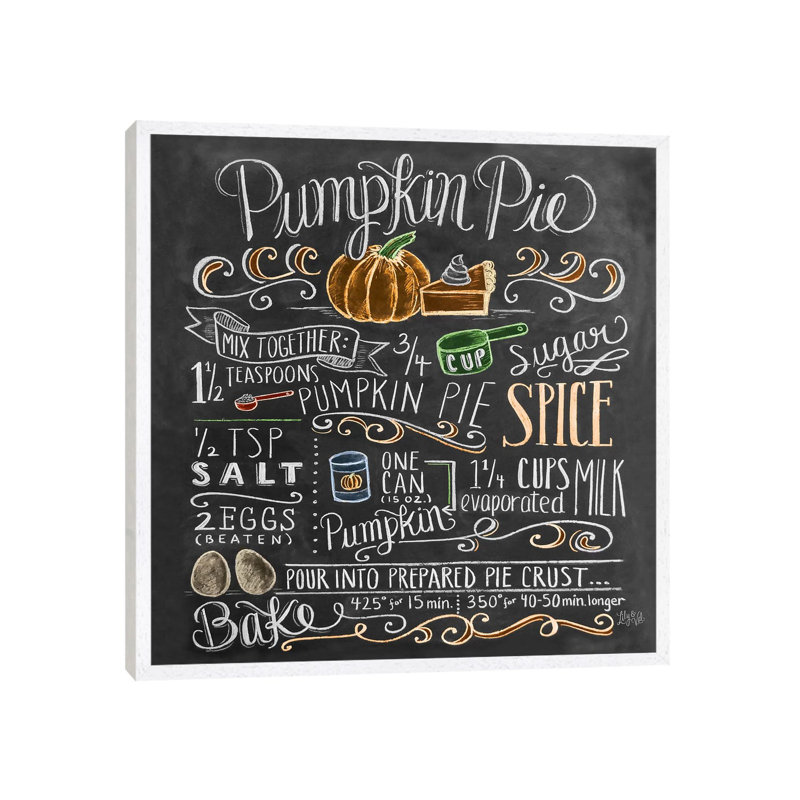 Pumpkin Pie
MIX TOGETHER:
3/4 CUP Sugar
1 1/2 TEASPOONS
PUMPKIN PIE SPICE
1/2 TSP
SALT
2 EGGS
(BEATEN)
ONE
CAN
(15 OZ.)
Pumpkin
1 1/4 CUPS
evaporated MILK
POUR INTO PREPARED PIE CRUST...
Bake 425° for 15 min. 350° for 40-50 min. longer
Lily & Val